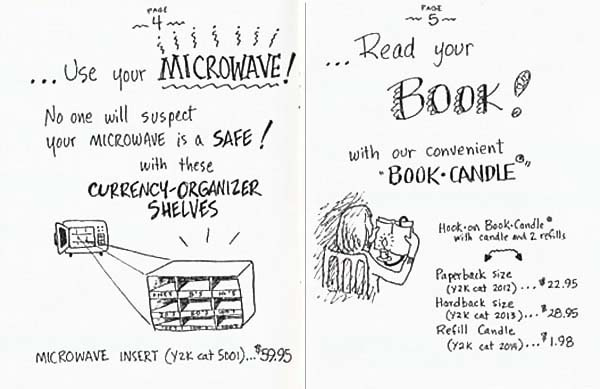 PAGE
~ 4 ~
...Use your MICROWAVE!
No one will suspect
your MICROWAVE is a SAFE!
with these
CURRENCY-ORGANIZER
SHELVES
MICROWAVE INSERT (Y2K cat 5001)...$59.95
PAGE
~ 5 ~
...Read your
BOOK!
with our convenient
"BOOK•CANDLE®"
Hook-on Book-Candle®
with candle and 2 refills
Paperback size
(Y2K cat 2012)...$22.95
Hardback size
(Y2K cat 2013)...$28.95
Refill Candle
(Y2K cat 2014)...$1.98